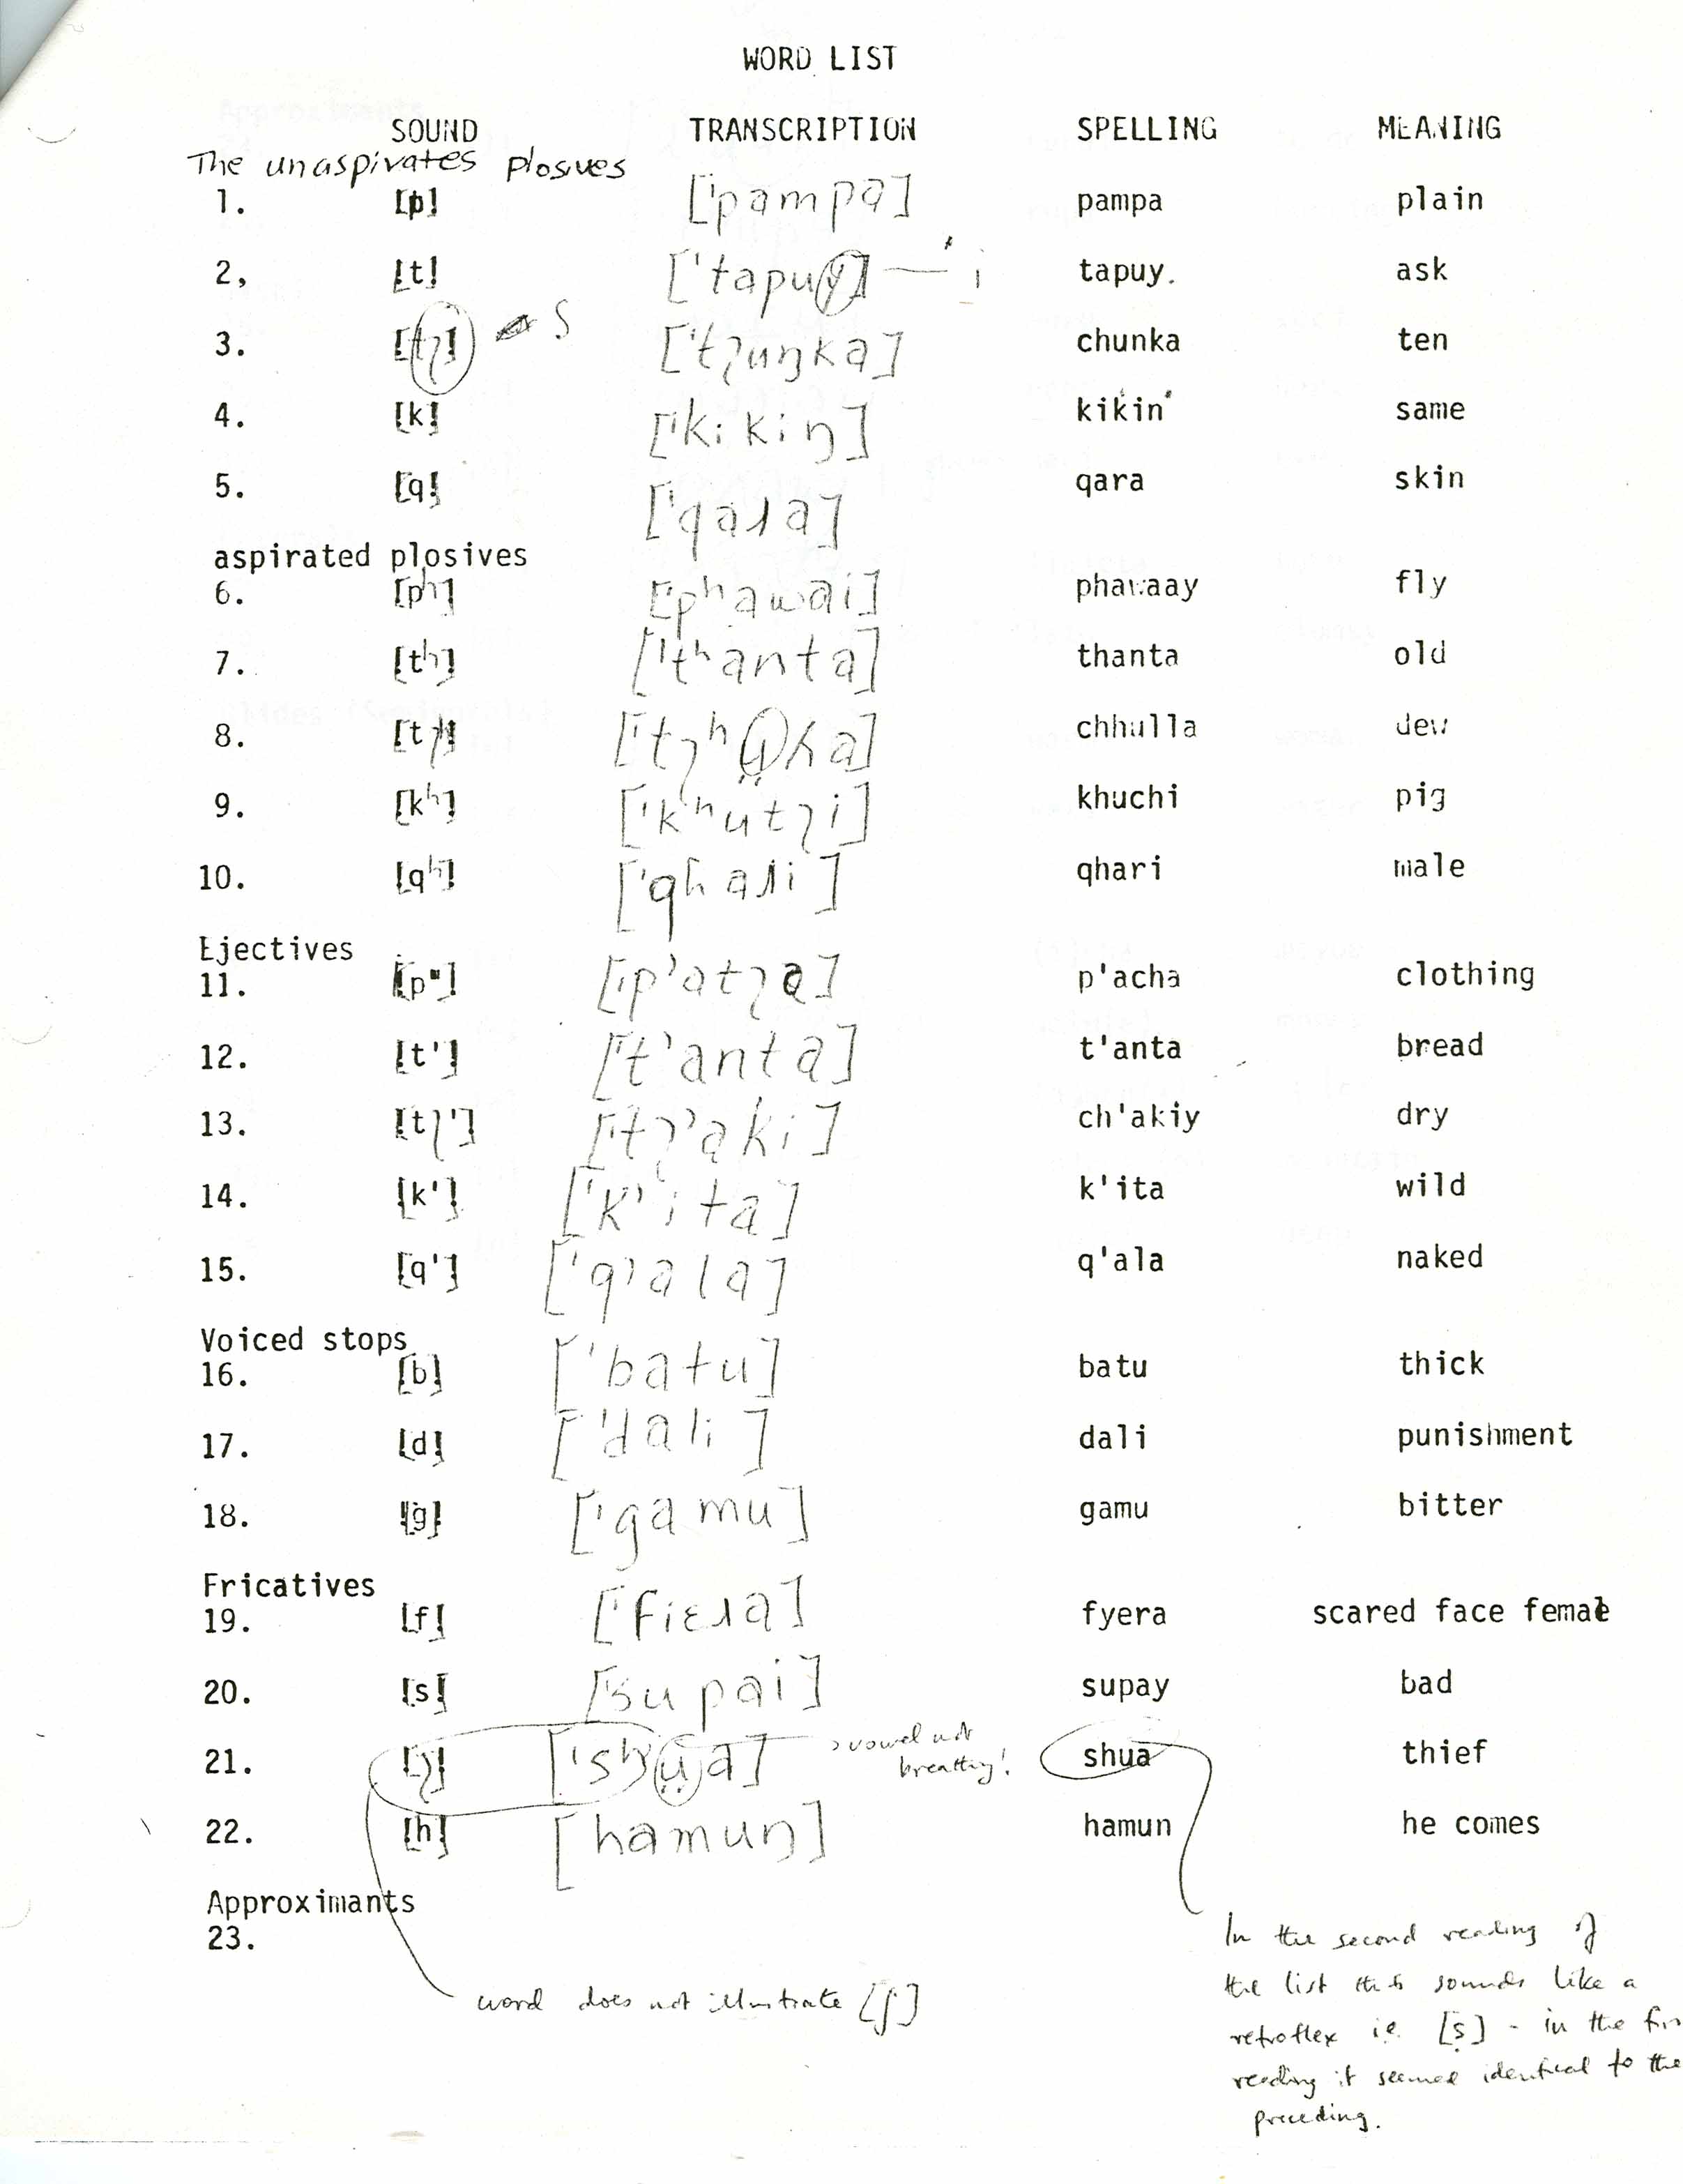 WORD LIST
SOUND TRANSCRIPTION SPELLING MEANING
The unaspirates plosives
1. [p] ['pampa] pampa plain
2, [t] ['tapuy] — i tapuy. ask
3. [tʃ] S ['tʃuŋka] chunka ten
4. [k] ['kikiŋ] kikin same
5. [q] ['qaɹa] qara skin
aspirated plosives
6. [pʰ] ['pʰawai] phawaay fly
7. [tʰ] ['tʰanta] thanta old
8. [tʃʰ] ['tʃʰṳʎa] chhulla dew
9. [kʰ] ['kʰutʃi] khuchi pig
10. [qʰ] ['qhaɹi] qhari male
Ejectives
11. [p'] ['p'atʃa] p'acha clothing
12. [t'] ['t'anta] t'anta bread
13. [tʃ'] ['tʃ'aki] ch'akiy dry
14. [k'] ['k'ita] k'ita wild
15. [q'] ['q'ala] q'ala naked
Voiced stops
16. [b] ['batu] batu thick
17. [d] ['dali] dali punishment
18. [g] ['gamu] gamu bitter
Fricatives
19. [f] ['fiɛɹa] fyera scared face female
20. [s] ['supai] supay bad
21. [ʃ] ['sʰṳa] vowel not shua thief
breathy!
22. [h] [hamuŋ] hamun he comes
Approximants
23.
In the second reading of
word does not illustrate [ʃ]
the list this sounds like a
retroflex i.e. [ṣ] - in the
reading it seemed identical to the
preceding.